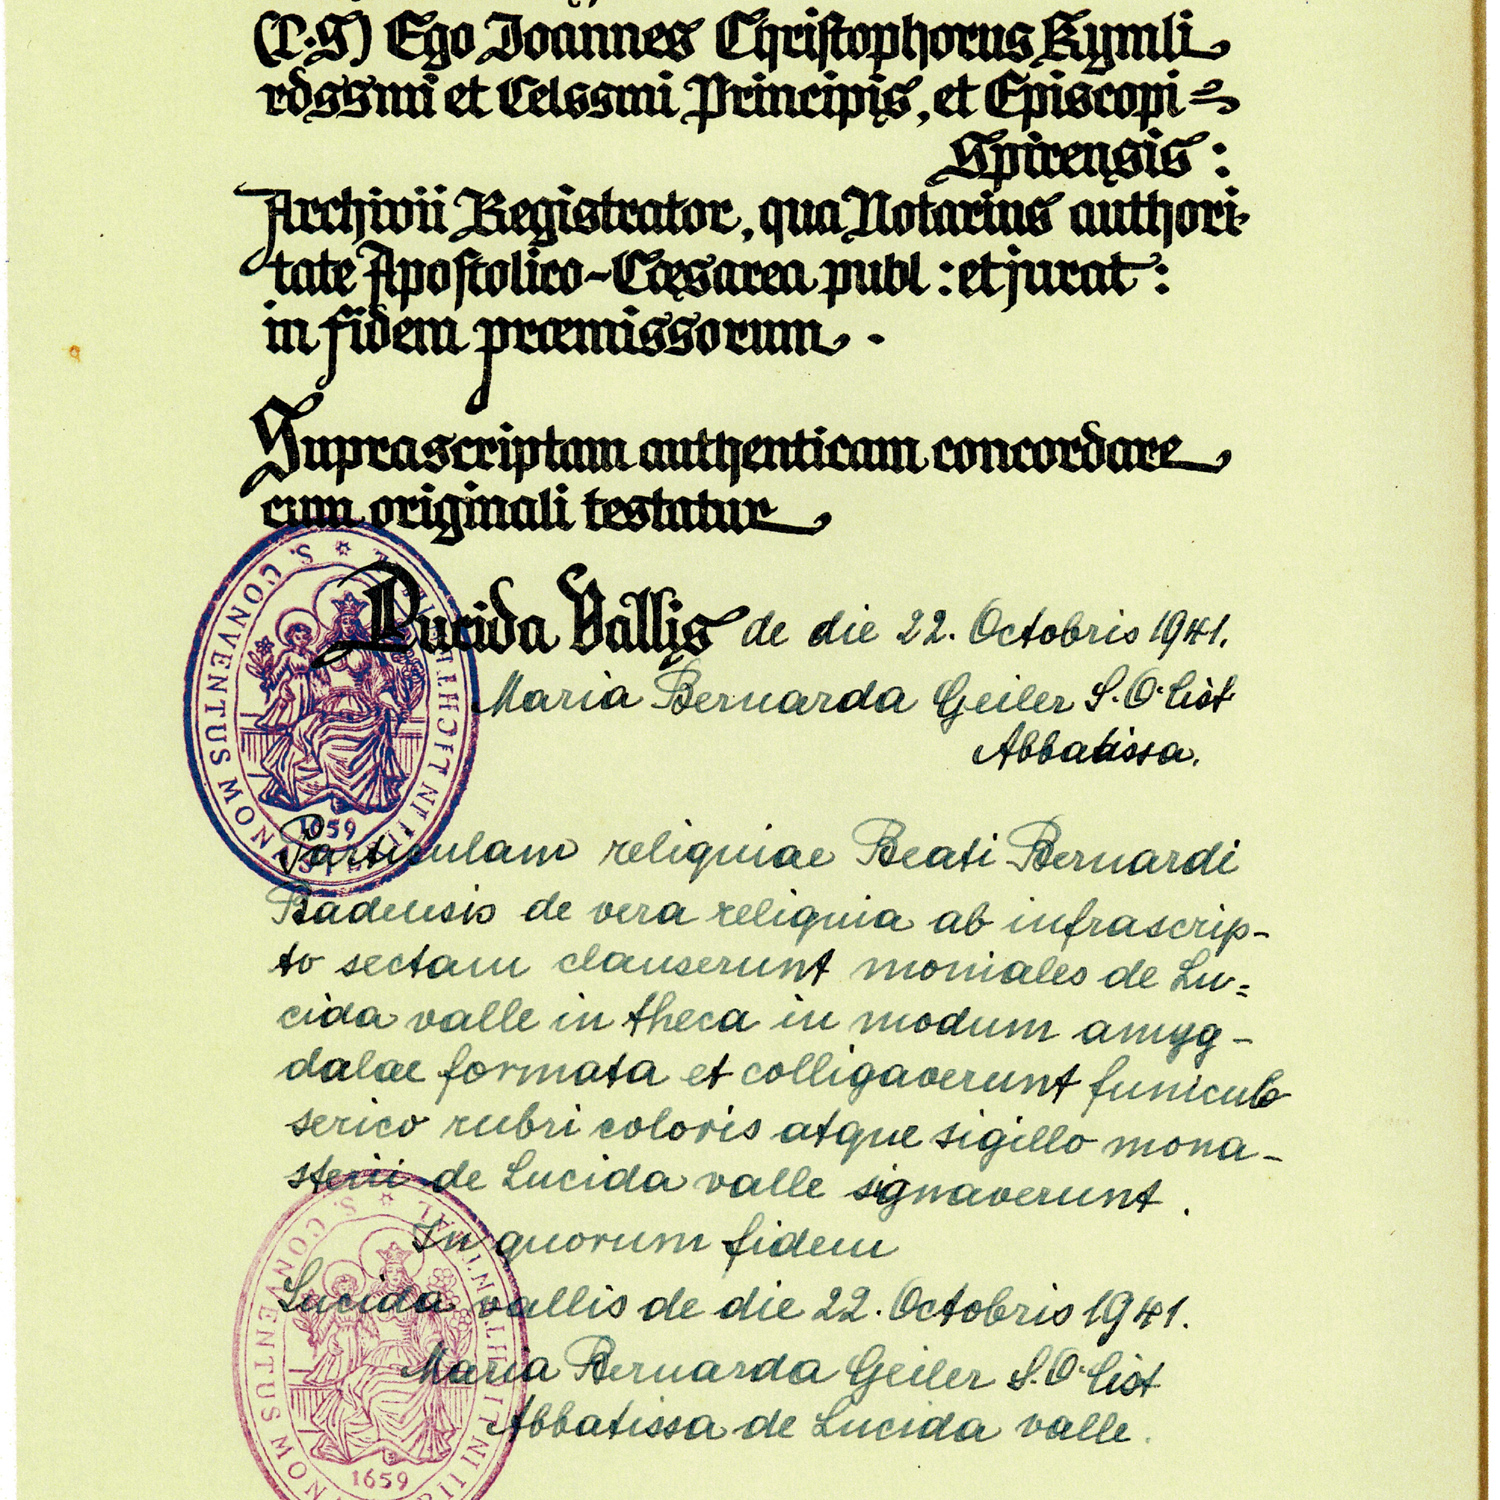 (L.S) Ego Joannes Christophorus Kymli
rdssmi et Celssmi Principis, et Episcopi=
Spirensis:
Archivii Registrator, qua Notarius authori-
tate Apostolico-Cæsarea publ: et jurat:
in fidem præmissorum.
Suprascriptam authenticam concordare
cum originali testatur
Lucida Vallis de die 22. Octobris 1941.
Maria Bernarda Geiler S.O.Cist
Abbatissa.
S. CONVENTUS MON
1659
Particulam reliquiae Beati Bernardi
Badensis de vera reliquia ab infrascrip-
to sectam clauserunt moniales de Lu=
cida valle in theca in modum amyg-
dalae formata et colligaverunt funiculo
serico rubri coloris atque sigillo mona-
sterii de Lucida valle signaverunt.
In quorum fidem
Lucida vallis de die 22. Octobris 1941.
Maria Bernarda Geiler S.O.Cist
Abbatissa de Lucida valle.
S. CONVENTUS MON
1659